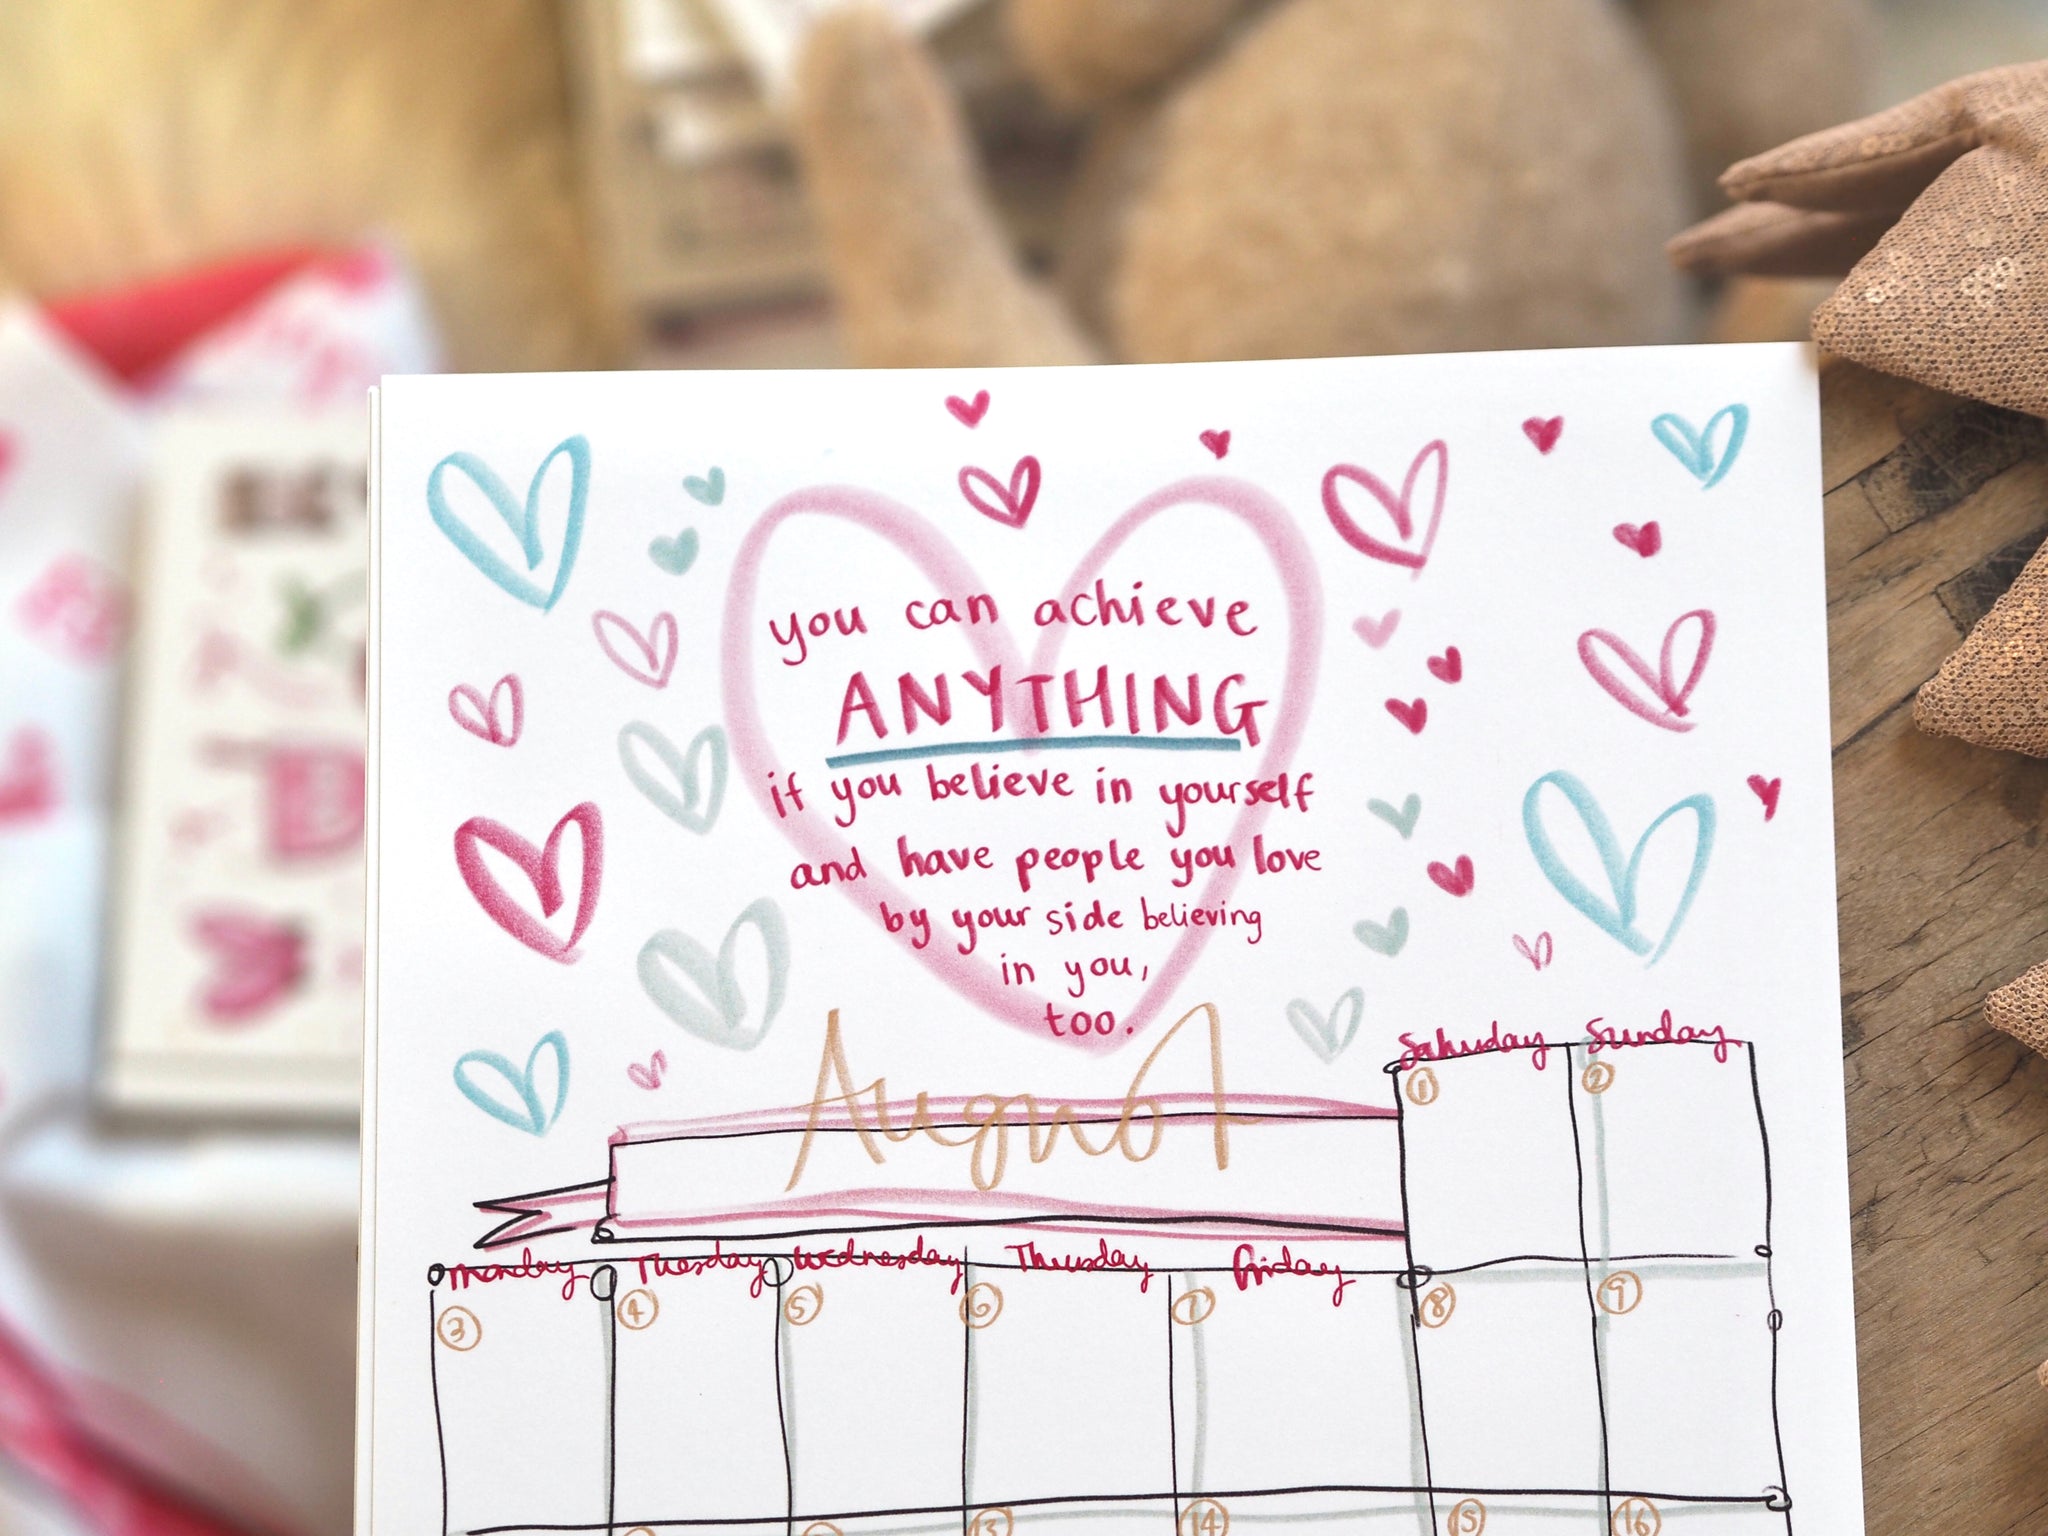 you can achieve
ANYTHING
if you believe in yourself
and have people you love
by your side believing
in you,
too.
August
Saturday Sunday
1 2
Monday Tuesday Wednesday Thursday Friday
3 4 5 6 7 8 9
13 14 15 16